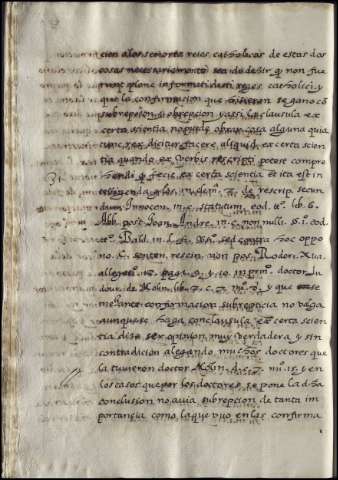 cion a los señores reies catholicos de estas dos
cosas necesariamente sea de desir q̃ non fue
runt plene informati dicti reges catholici, y
que la confirmacion que hisieron se gano cõ
subrepsion, i obrepcion y assi la clausula ex
certa scientia no puede obrar cosa alguna quia
tunc, rex dicitur facere, aliquid, ex certa scien
tia quando ex verbis rescripti potest compre
hendi q̃ fecit ex certa sciencia et ita est in
de rescrip. secun
dum Innocen. in. c. statutum, eod. tt.º lib. 6.
Abb. post Joan. Andre. in. c. non nulli. §. i. eod.
tt.º Bald. in. l. fi. sed contra hoc oppo
no. C. senten. rescin. non pos. Roderi. Xua.
allega. doctor Lu
dovi. de Molin. lib. y que
mejante confirmacion subrepticia no valga
aunque se haga con clausula, ex certa scien
cia dise ser opinion muy verdadera, y sin
contradicion alegando muchos doctores que
la tuvieron doctor Molin. y en
los casos que por los doctores se pone la dha
conclussion no avia subrepcion de tanta im
portancia como la que uvo en las confirma